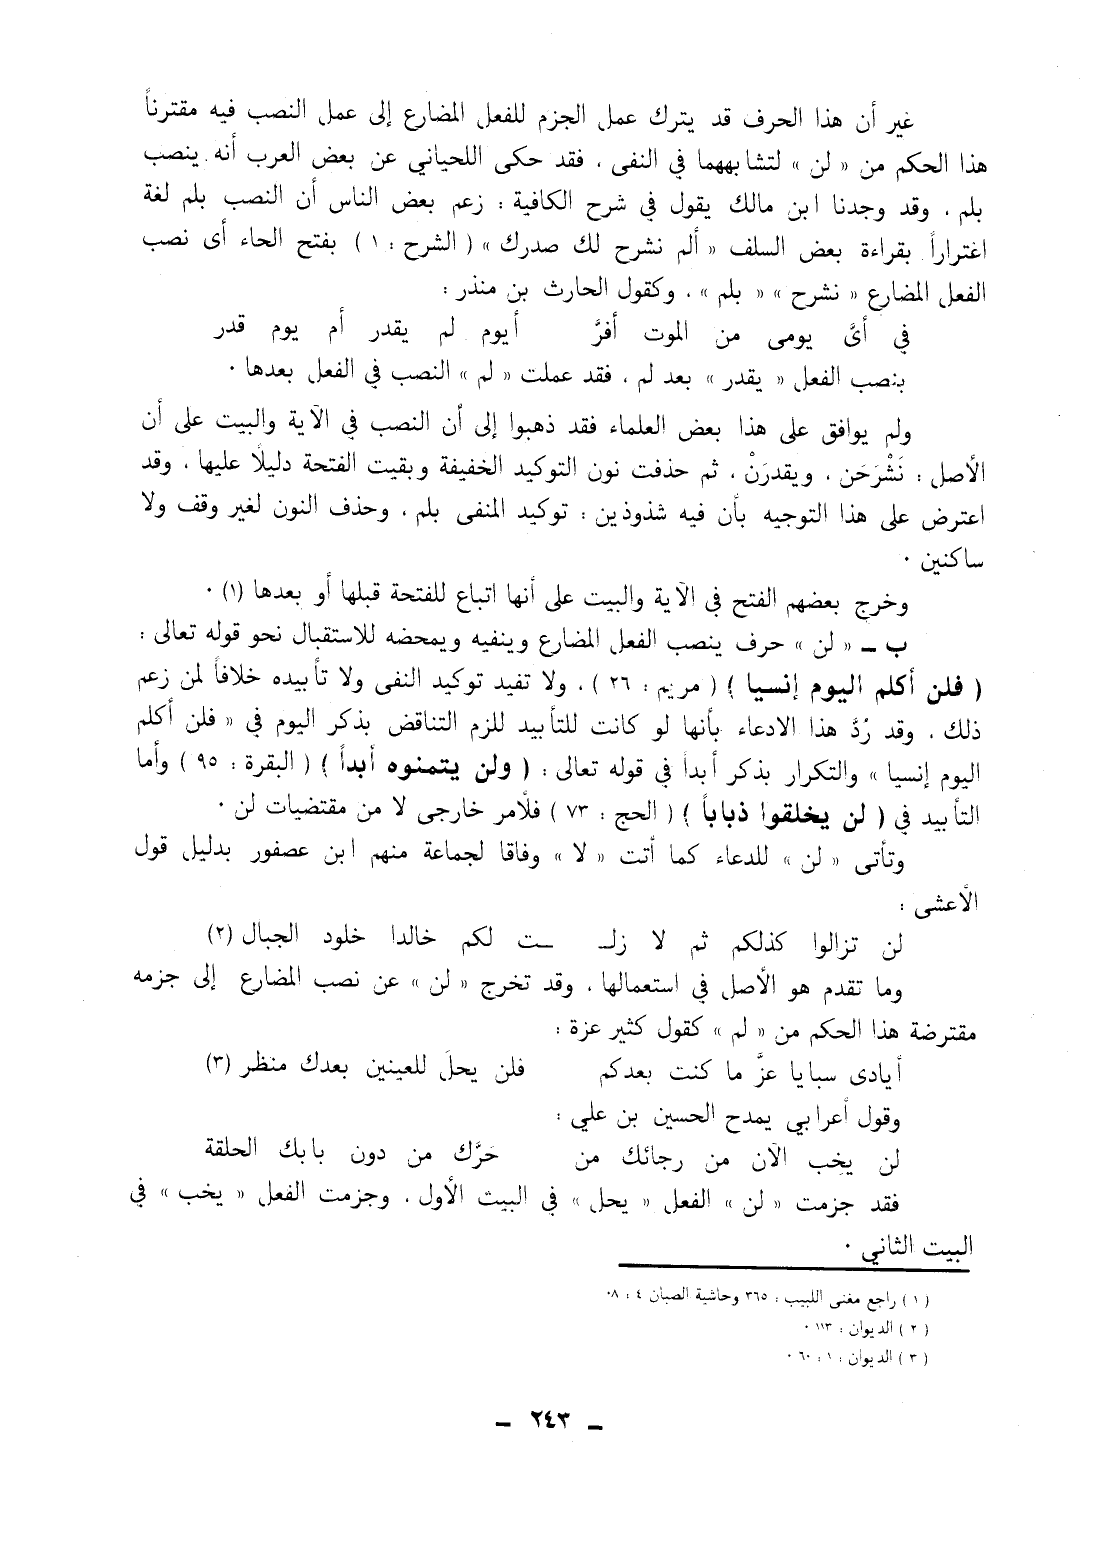 غير أن هذا الحرف قد يترك عمل الجزم للفعل المضارع إلى عمل النصب فيه مقترناً
هذا الحكم من « لن » لتشابههما في النفى ، فقد حكى اللحياني عن بعض العرب أنه ينصب
بلم ، وقد وجدنا ابن مالك يقول في شرح الكافية : زعم بعض الناس أن النصب بلم لغة
اغتراراً بقراءة بعض السلف « ألم نشرح لك صدرك » ( الشرح : ١ ) بفتح الحاء أى نصب
الفعل المضارع « نشرح » « بلم » ، وكقول الحارث بن منذر :
في أىَّ يومى من الموت أفرَّ أيوم لم يقدر أم يوم قدر
بنصب الفعل « يقدر » بعد لم ، فقد عملت « لم » النصب في الفعل بعدها ·
ولم يوافق على هذا بعض العلماء فقد ذهبوا إلى أن النصب في الآية والبيت على أن
الأصل : نَشْرَحَن ، ويقدرَنْ ، ثم حذفت نون التوكيد الخفيفة وبقيت الفتحة دليلاً عليها ، وقد
اعترض على هذا التوجيه بأن فيه شذوذين : توكيد المنفى بلم ، وحذف النون لغير وقف ولا
ساكنين ·
وخرج بعضهم الفتح في الآية والبيت على أنها اتباع للفتحة قبلها أو بعدها (١) ·
ب ــ « لن » حرف ينصب الفعل المضارع وينفيه ويمحضه للاستقبال نحو قوله تعالى :
( فلن أكلم اليوم إنسيا ) ( مريم : ٢٦ ) ، ولا تفيد توكيد النفى ولا تأبيده خلافاً لمن زعم
ذلك ، وقد رُدَّ هذا الادعاء بأنها لو كانت للتأبيد للزم التناقض بذكر اليوم في « فلن أكلم
اليوم إنسيا » والتكرار بذكر أبداً في قوله تعالى : ( ولن يتمنوه أبداً ) ( البقرة : ٩٥ ) وأما
التأبيد في ( لن يخلقوا ذباباً ) ( الحج : ٧٣ ) فلأمر خارجى لا من مقتضيات لن ·
وتأتى « لن » للدعاء كما أتت « لا » وفاقا لجماعة منهم ابن عصفور بدليل قول
الأعشى :
لن تزالوا كذلكم ثم لا زلـ ـــت لكم خالدا خلود الجبال (٢)
وما تقدم هو الأصل في استعمالها ، وقد تخرج « لن » عن نصب المضارع إلى جزمه
مقترضة هذا الحكم من « لم » كقول كثير عزة :
أيادى سبايا عزَّ ما كنت بعدكم فلن يحلَ للعينين بعدك منظر (٣)
وقول أعرابي يمدح الحسين بن علي :
لن يخب الآن من رجائك من حَرَّك من دون بابك الحلقة
فقد جزمت « لن » الفعل « يحل » في البيت الأول ، وجزمت الفعل « يخب » في
البيت الثاني ·
( ١ ) راجع مغنى اللبيب : ٣٦٥ وحاشية الصبان ٤ : ٠٨
( ٢ ) الديوان : ١١٣ ·
( ٣ ) الديوان : ١ : ٦٠ ·
ــ ٢٤٣ ــ